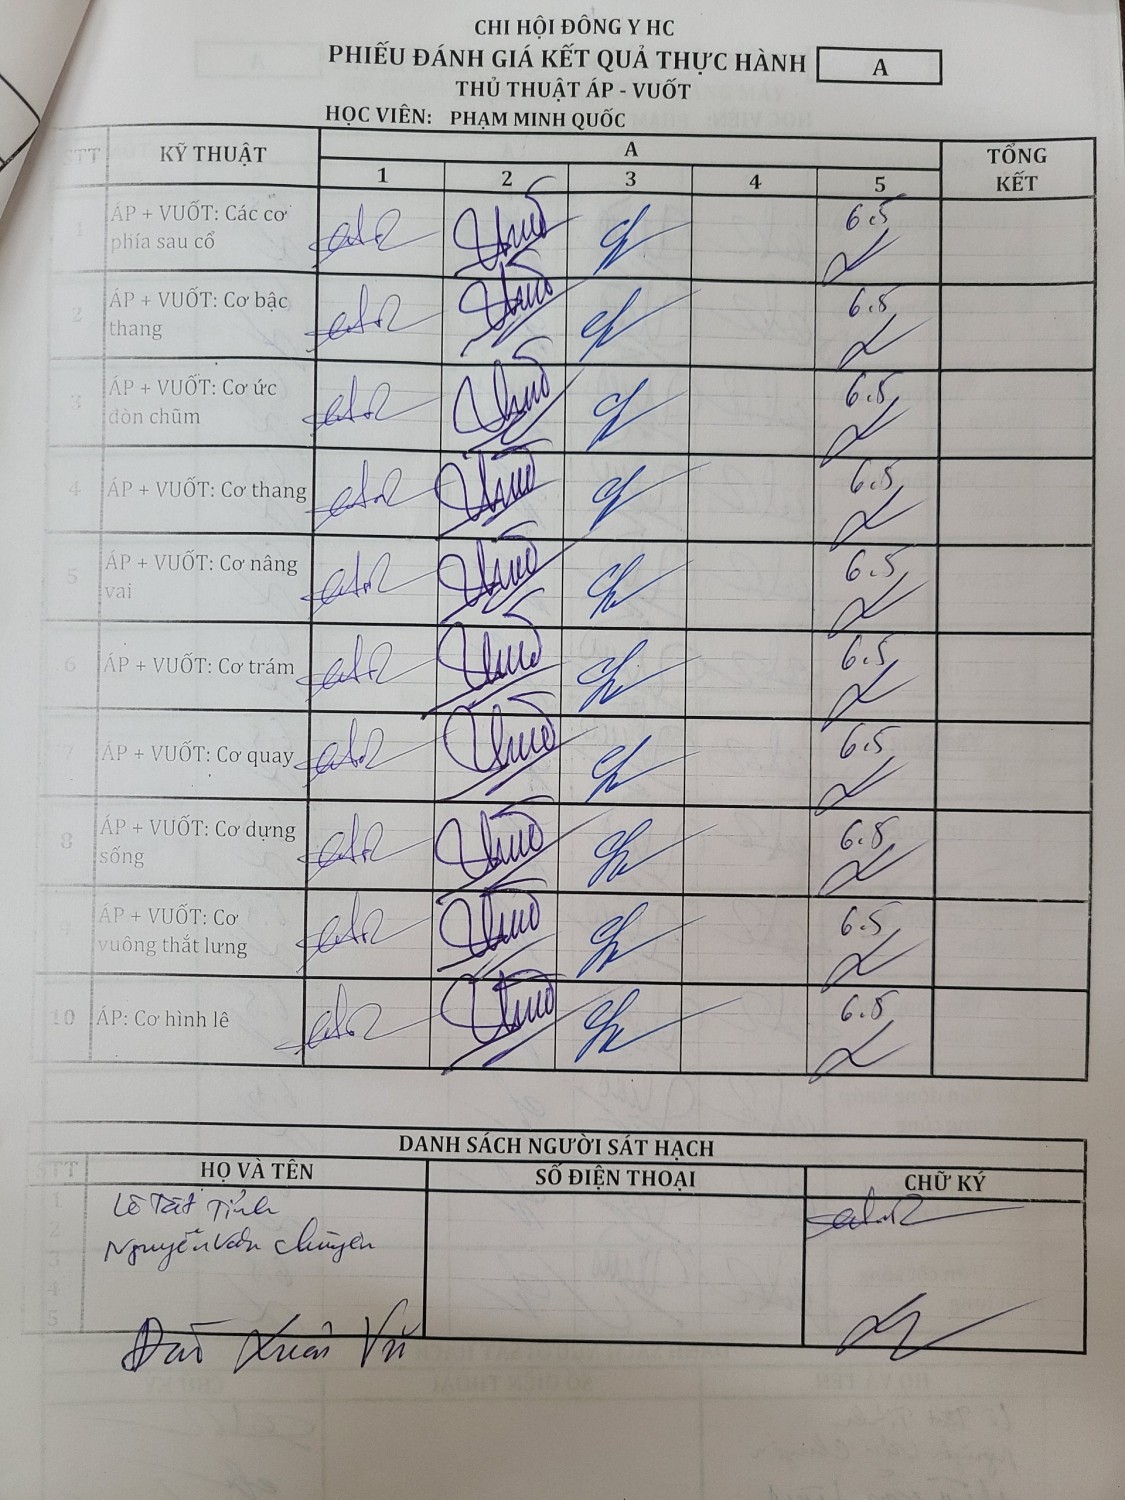 CHI HỘI ĐÔNG Y HC
PHIẾU ĐÁNH GIÁ KẾT QUẢ THỰC HÀNH
A
THỦ THUẬT ÁP - VUỐT
HỌC VIÊN: PHẠM MINH QUỐC
STT KỸ THUẬT A TỔNG KẾT
1 2 3 4 5
1 ÁP + VUỐT: Các cơ phía sau cổ 6.5
2 ÁP + VUỐT: Cơ bậc thang 6.5
3 ÁP + VUỐT: Cơ ức đòn chũm 6.5
4 ÁP + VUỐT: Cơ thang 6.5
5 ÁP + VUỐT: Cơ nâng vai 6.5
6 ÁP + VUỐT: Cơ trám 6.5
7 ÁP + VUỐT: Cơ quay 6.5
8 ÁP + VUỐT: Cơ dựng sống 6.5
9 ÁP + VUỐT: Cơ vuông thắt lưng 6.5
10 ÁP: Cơ hình lê 6.5
DANH SÁCH NGƯỜI SÁT HẠCH
STT HỌ VÀ TÊN SỐ ĐIỆN THOẠI CHỮ KÝ
1 Lê Tất Tỉnh
2 Nguyễn Văn Chuyên
3
4
5 Xuân Vũ